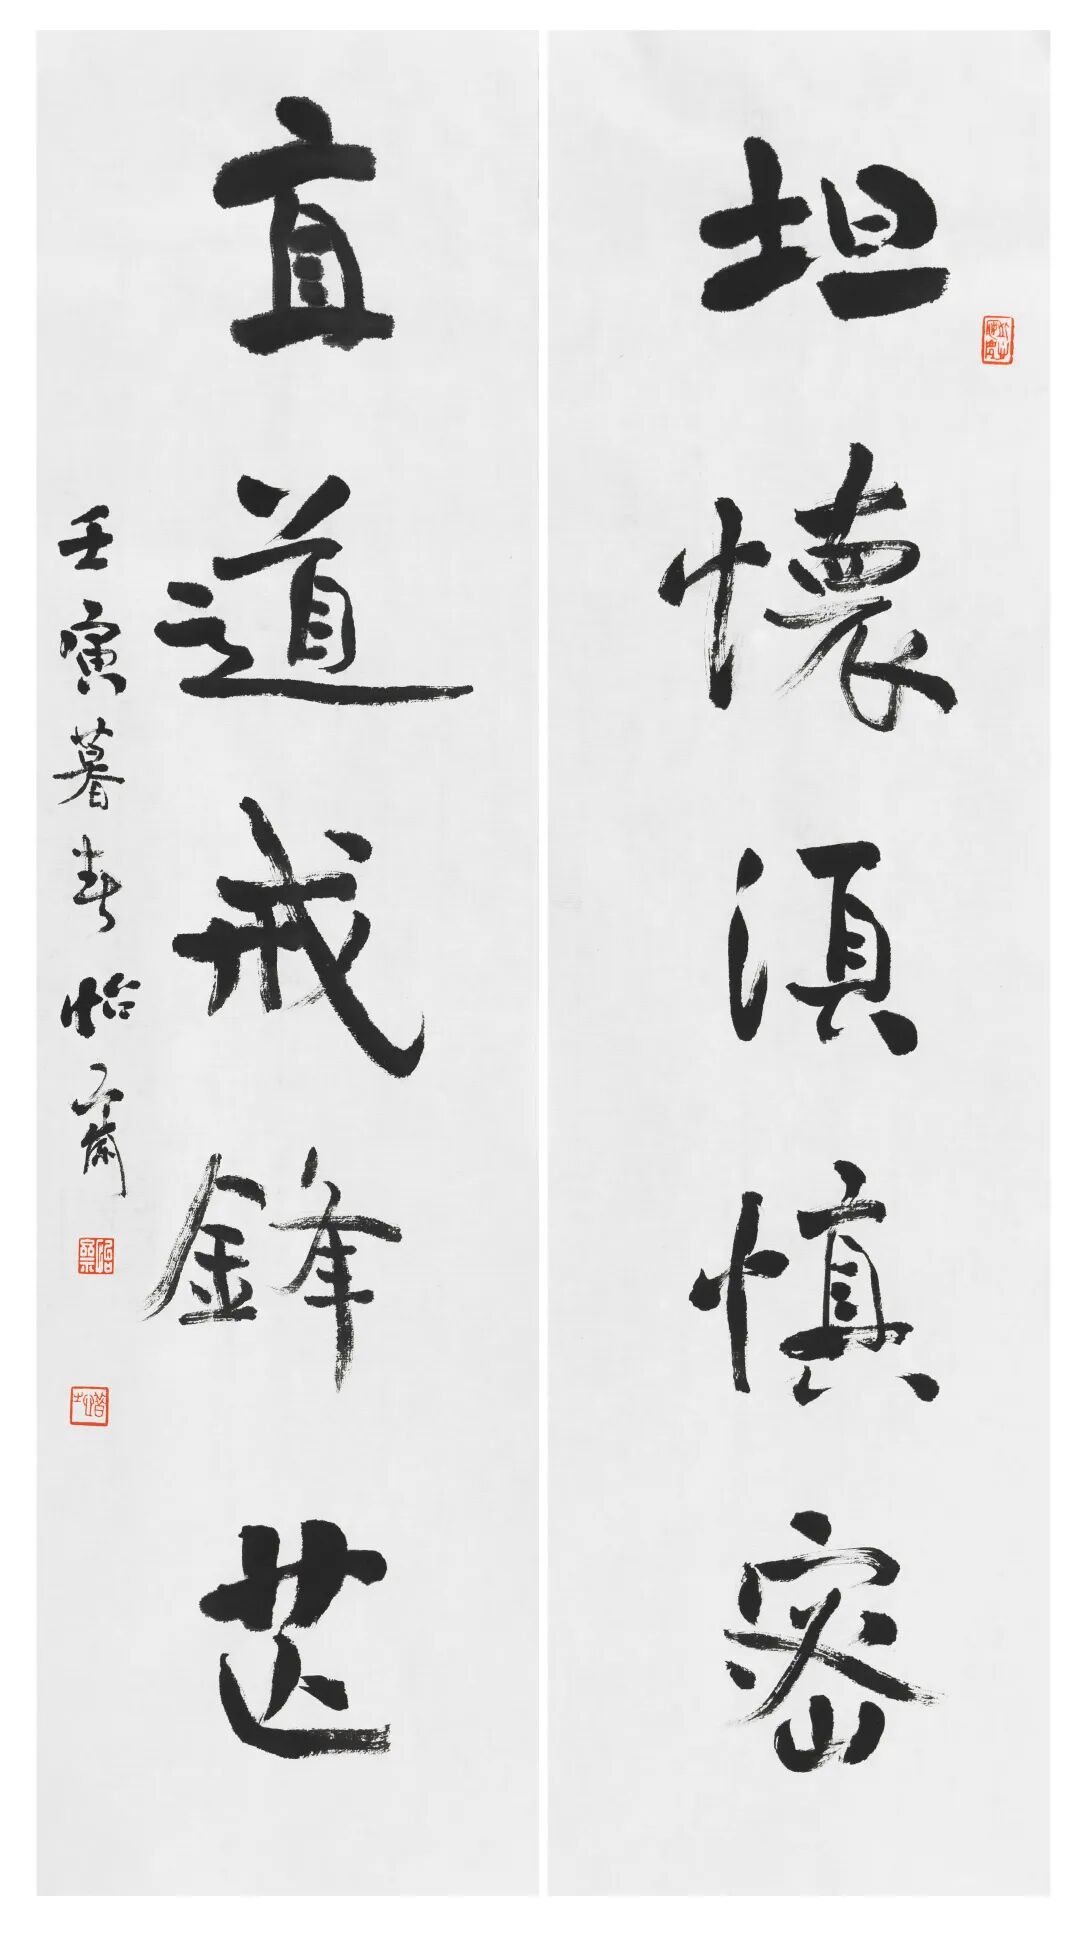 坦懷須慎密
直道戒鋒芒
壬寅暮春怡齋